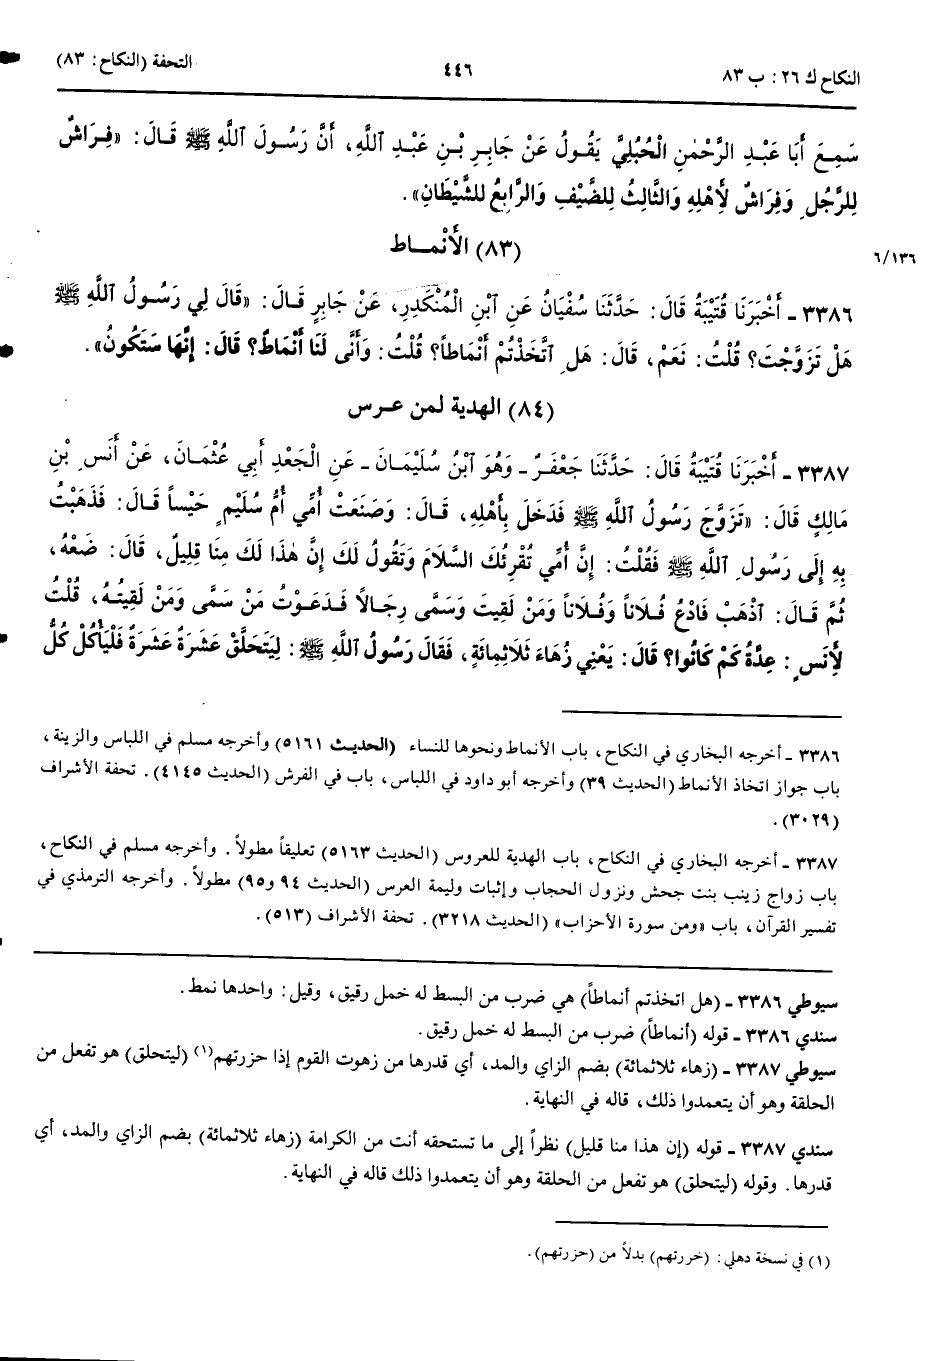 النكاح ك ٢٦: ب ٨٣
٤٤٦
التحفة (النكاح: ٨٣)
سَمِعَ أَبَا عَبْدِ الرَّحْمٰنِ الْحُبُلِيَّ يَقُولُ عَنْ جَابِرِ بْنِ عَبْدِ اللَّهِ، أَنَّ رَسُولَ اللَّهِ ﷺ قَالَ: «فِرَاشٌ
لِلرَّجُلِ وَفِرَاشٌ لِأَهْلِهِ وَالثَّالِثُ لِلضَّيْفِ وَالرَّابِعُ لِلشَّيْطَانِ».
(٨٣) الأَنْمـاط
٦/١٣٦
٣٣٨٦ ـ أَخْبَرَنَا قُتَيْبَةُ قَالَ: حَدَّثَنَا سُفْيَانُ عَنِ ٱبْنِ الْمُنْكَدِرِ، عَنْ جَابِرٍ قَالَ: «قَالَ لِي رَسُولُ اللَّهِ ﷺ
هَلْ تَزَوَّجْتَ؟ قُلْتُ: نَعَمْ، قَالَ: هَلِ ٱتَّخَذْتُمْ أَنْمَاطاً؟ قُلْتُ: وَأَنَّى لَنَا أَنْمَاطٌ؟ قَالَ: إِنَّهَا سَتَكُونُ».
(٨٤) الهدية لمن عـرس
٣٣٨٧ ـ أَخْبَرَنَا قُتَيْبَةُ قَالَ: حَدَّثَنَا جَعْفَرٌ ـ وَهُوَ ٱبْنُ سُلَيْمَانَ ـ عَنِ الْجَعْدِ أَبِي عُثْمَانَ، عَنْ أَنَسِ بْنِ
مَالِكٍ قَالَ: «تَزَوَّجَ رَسُولُ اللَّهِ ﷺ فَدَخَلَ بِأَهْلِهِ، قَالَ: وَصَنَعَتْ أُمِّي أُمُّ سُلَيْمٍ حَيْساً قَالَ: فَذَهَبْتُ
بِهِ إِلَى رَسُولِ اللَّهِ ﷺ فَقُلْتُ: إِنَّ أُمِّي تُقْرِئُكَ السَّلَامَ وَتَقُولُ لَكَ إِنَّ هٰذَا لَكَ مِنَّا قَلِيلٌ، قَالَ: ضَعْهُ،
ثُمَّ قَالَ: ٱذْهَبْ فَادْعُ فُلَاناً وَفُلَاناً وَمَنْ لَقِيتَ وَسَمَّى رِجَالاً فَدَعَوْتُ مَنْ سَمَّى وَمَنْ لَقِيتُهُ، قُلْتُ
لِأَنَسٍ: عِدَّةُ كَمْ كَانُوا؟ قَالَ: يَعْنِي زُهَاءَ ثَلَاثِمِائَةٍ، فَقَالَ رَسُولُ اللَّهِ ﷺ: لِيَتَحَلَّقْ عَشَرَةٌ عَشَرَةٌ فَلْيَأْكُلْ كُلُّ
٣٣٨٦ ـ أخرجه البخاري في النكاح، باب الأنماط ونحوها للنساء (الحديث ٥١٦١) وأخرجه مسلم في اللباس والزينة،
باب جواز اتخاذ الأنماط (الحديث ٣٩) وأخرجه أبو داود في اللباس، باب في الفرش (الحديث ٤١٤٥). تحفة الأشراف
(٣٠٢٩).
٣٣٨٧ ـ أخرجه البخاري في النكاح، باب الهدية للعروس (الحديث ٥١٦٣) تعليقاً مطولاً. وأخرجه مسلم في النكاح،
باب زواج زينب بنت جحش ونزول الحجاب وإثبات وليمة العرس (الحديث ٩٤ و٩٥) مطولاً. وأخرجه الترمذي في
تفسير القرآن، باب «ومن سورة الأحزاب» (الحديث ٣٢١٨). تحفة الأشراف (٥١٣).
سيوطي ٣٣٨٦ ـ (هل اتخذتم أنماطاً) هي ضرب من البسط له خمل رقيق، وقيل: واحدها نمط.
سندي ٣٣٨٦ ـ قوله (أنماطاً) ضرب من البسط له خمل رقيق.
سيوطي ٣٣٨٧ ـ (زهاء ثلاثمائة) بضم الزاي والمد، أي قدرها من زهوت القوم إذا حزرتهم(١) (ليتحلق) هو تفعل من
الحلقة وهو أن يتعمدوا ذلك، قاله في النهاية.
سندي ٣٣٨٧ ـ قوله (إن هذا منا قليل) نظراً إلى ما تستحقه أنت من الكرامة (زهاء ثلاثمائة) بضم الزاي والمد، أي
قدرها. وقوله (ليتحلق) هو تفعل من الحلقة وهو أن يتعمدوا ذلك قاله في النهاية.
(١) في نسخة دهلي: (خررتهم) بدلاً من (حزرتهم).